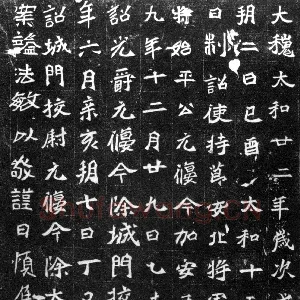 大魏太和廿二年歲次
朔二日己酉太和十五
日制詔使持節安北將軍
將始平公元偃今加安西
九年十二月廿九日乙未
詔光爵元偃今除城門校
年六月辛亥朔七日丁巳
詔城門校尉元偃今除太
案謚法敏以敬謹曰順侯